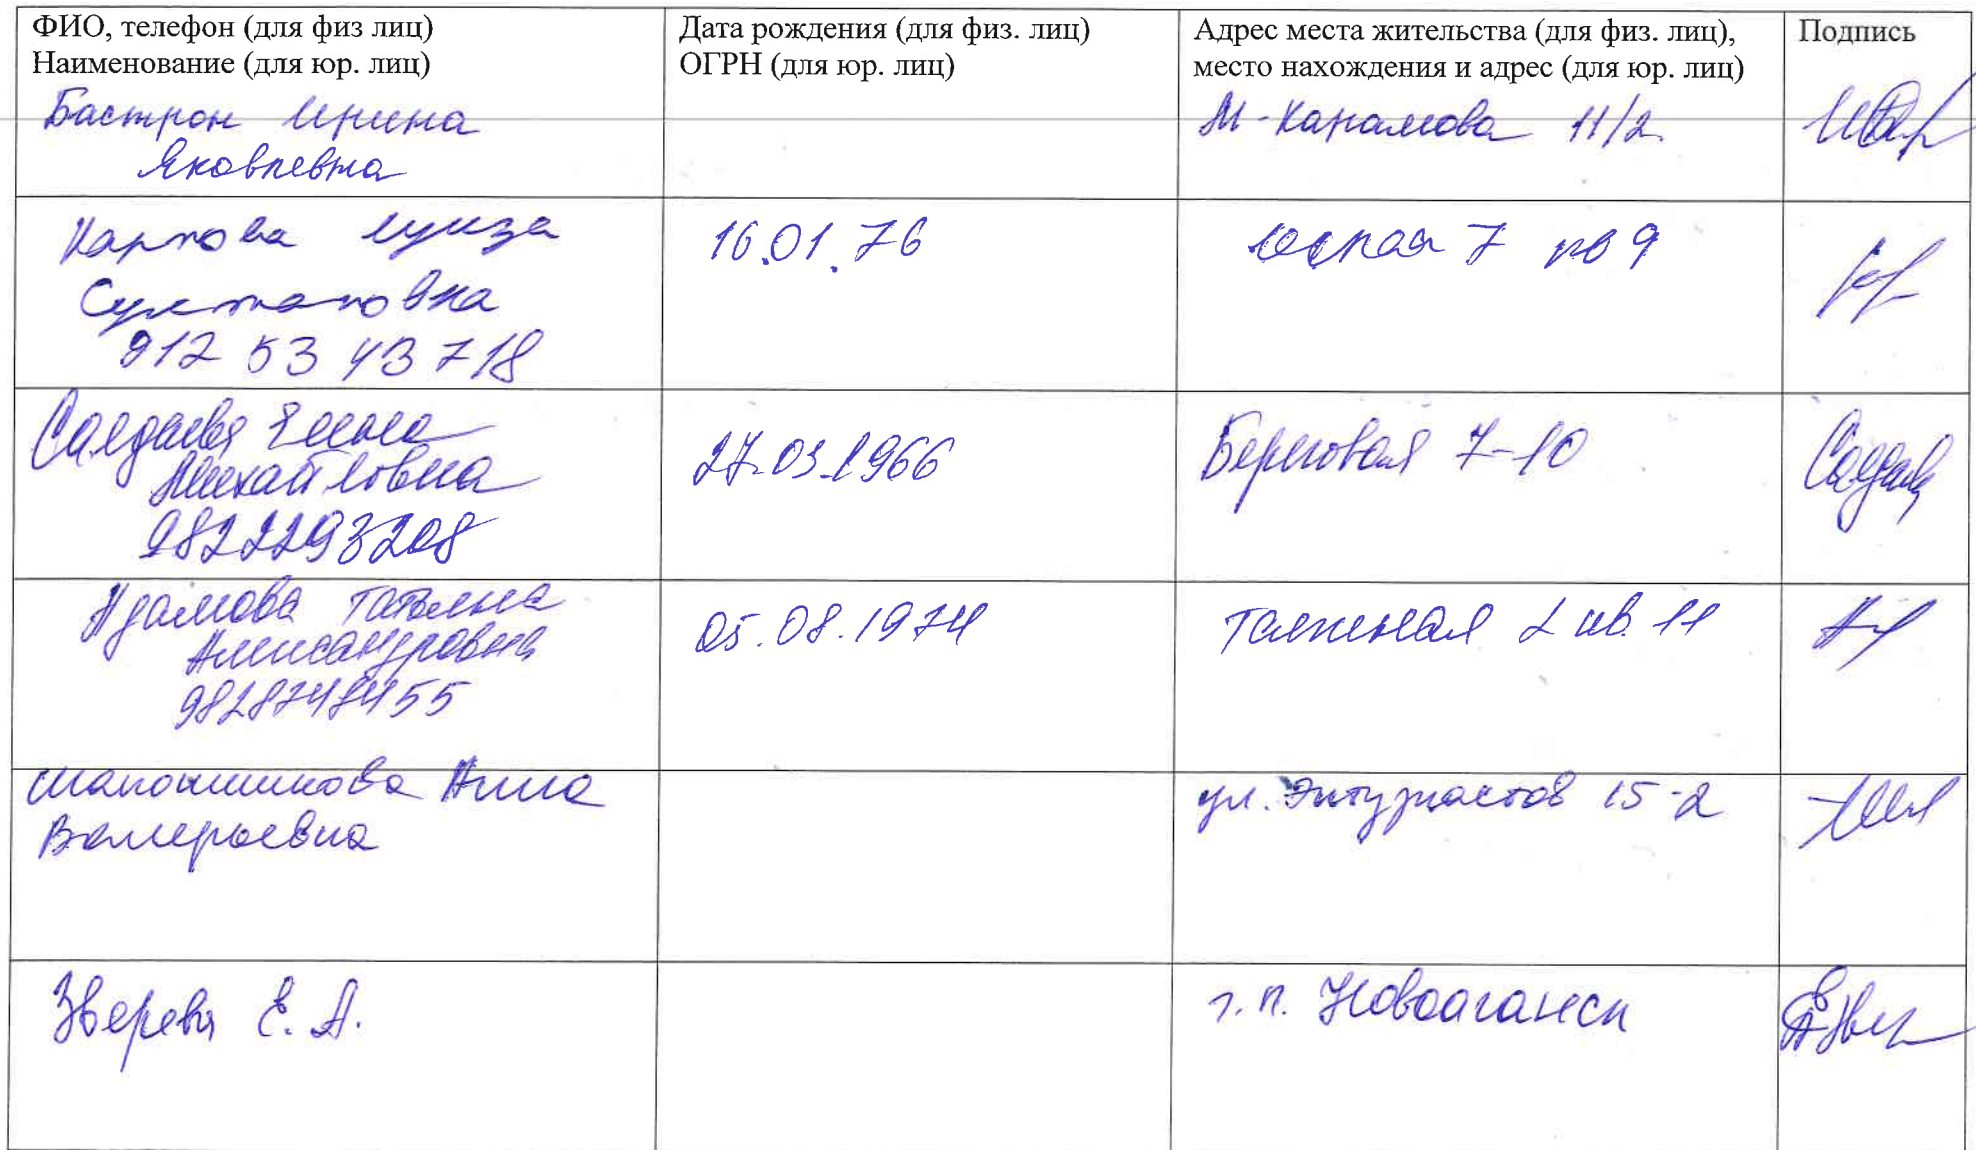 ФИО, телефон (для физ лиц)
Наименование (для юр. лиц)
Дата рождения (для физ. лиц)
ОГРН (для юр. лиц)
Адрес места жительства (для физ. лиц),
место нахождения и адрес (для юр. лиц)
Подпись
Бастрон Ирина
Яковлевна
М-Карамова 11/2
Карпова Луиза
Султановна
912 53 43 718
16.01.76
лесная 7 кв 9
Салдаева Елена
Михайловна
9822293208
27.03.1966
Береговая 7-10
Адамова Татьяна
Александровна
05.08.1974
Таежная 2 кв. 11
Шапошникова Анна
Валерьевна
ул. Энтузиастов 15-2
Зверева Е. А.
г.п. Новоаганск